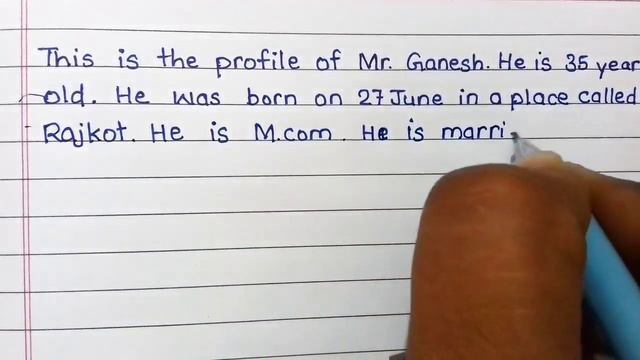 This is the profile of Mr. Ganesh. He is 35 year
old. He was born on 27 June in a place called
Rajkot. He is M.com. He is marri